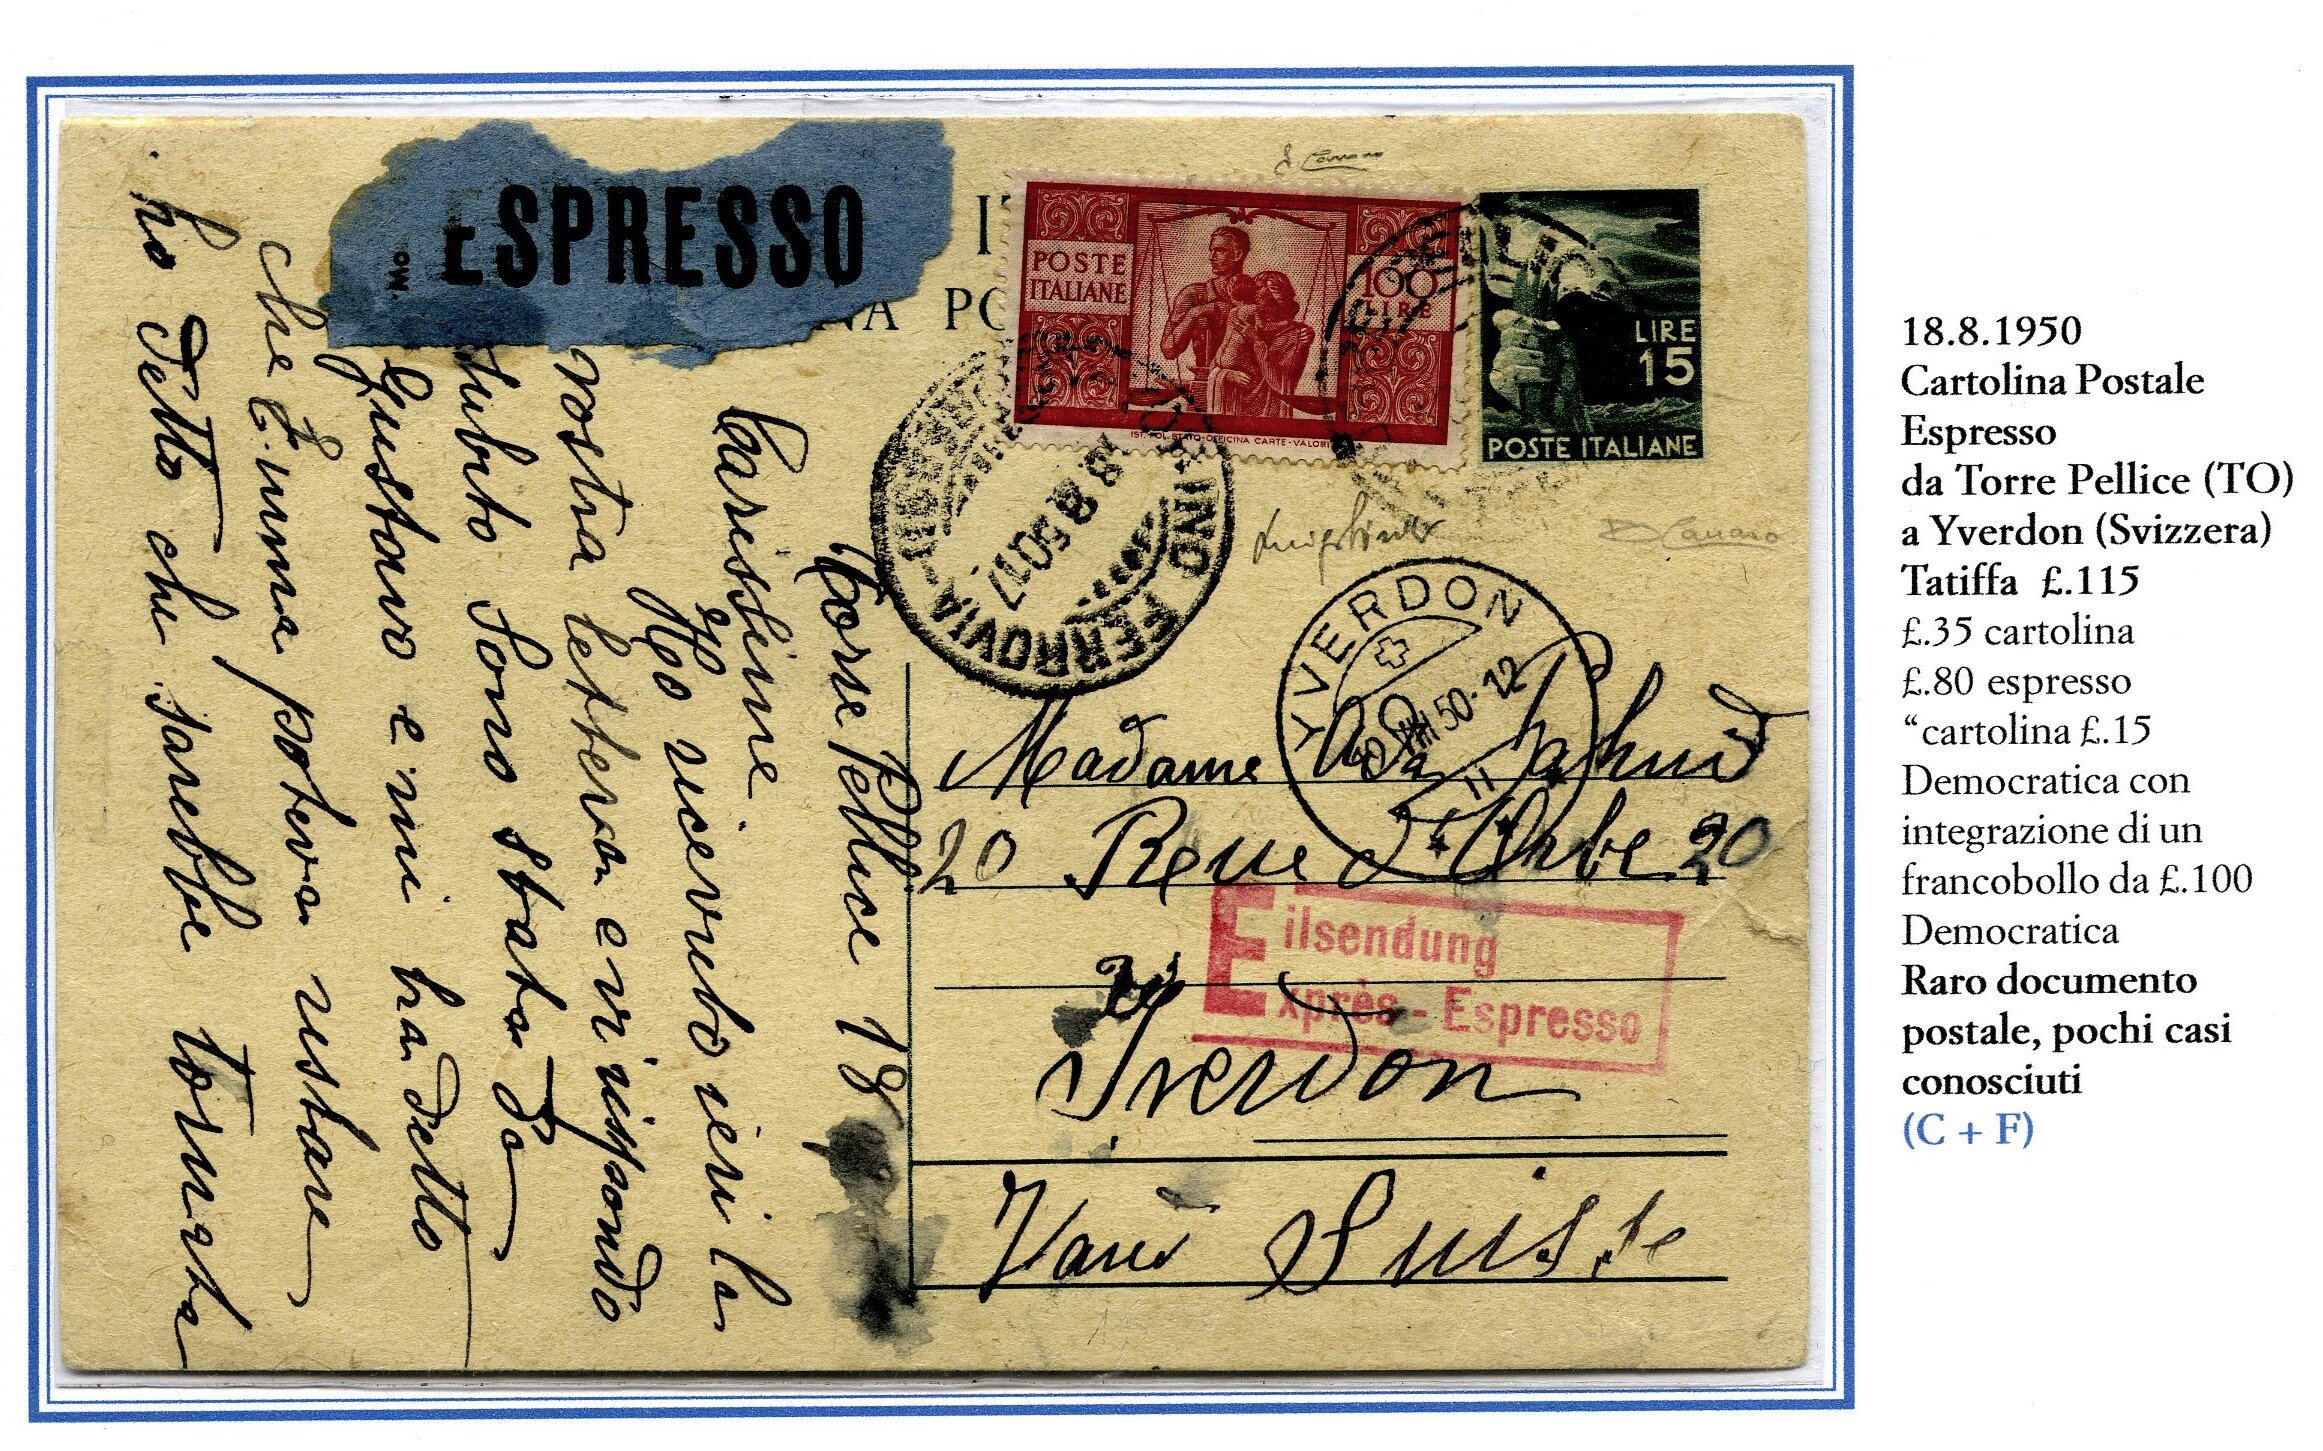 ESPRESSO
POSTE
ITALIANE
100
LIRE
IST. POL. STATO-OFFICINA CARTE-VALORI
LIRE
15
POSTE ITALIANE
NA PO
FERROVIA
8 8 50 17
YVERDON
VIII 50-12
Torre Pellice 18
Carissime
Ho ricevuto ieri la
vostra lettera e vi rispondo
subito Sono stata da
Gustavo e mi ha detto
che Emma poteva restare
ho detto che sarebbe tornata
Madame
20 Rue d'Orbe 20
Eilsendung
Exprès - Espresso
Yverdon
Vaud Suisse
18.8.1950
Cartolina Postale
Espresso
da Torre Pellice (TO)
a Yverdon (Svizzera)
Tatiffa £.115
£.35 cartolina
£.80 espresso
“cartolina £.15
Democratica con
integrazione di un
francobollo da £.100
Democratica
Raro documento
postale, pochi casi
conosciuti
(C + F)